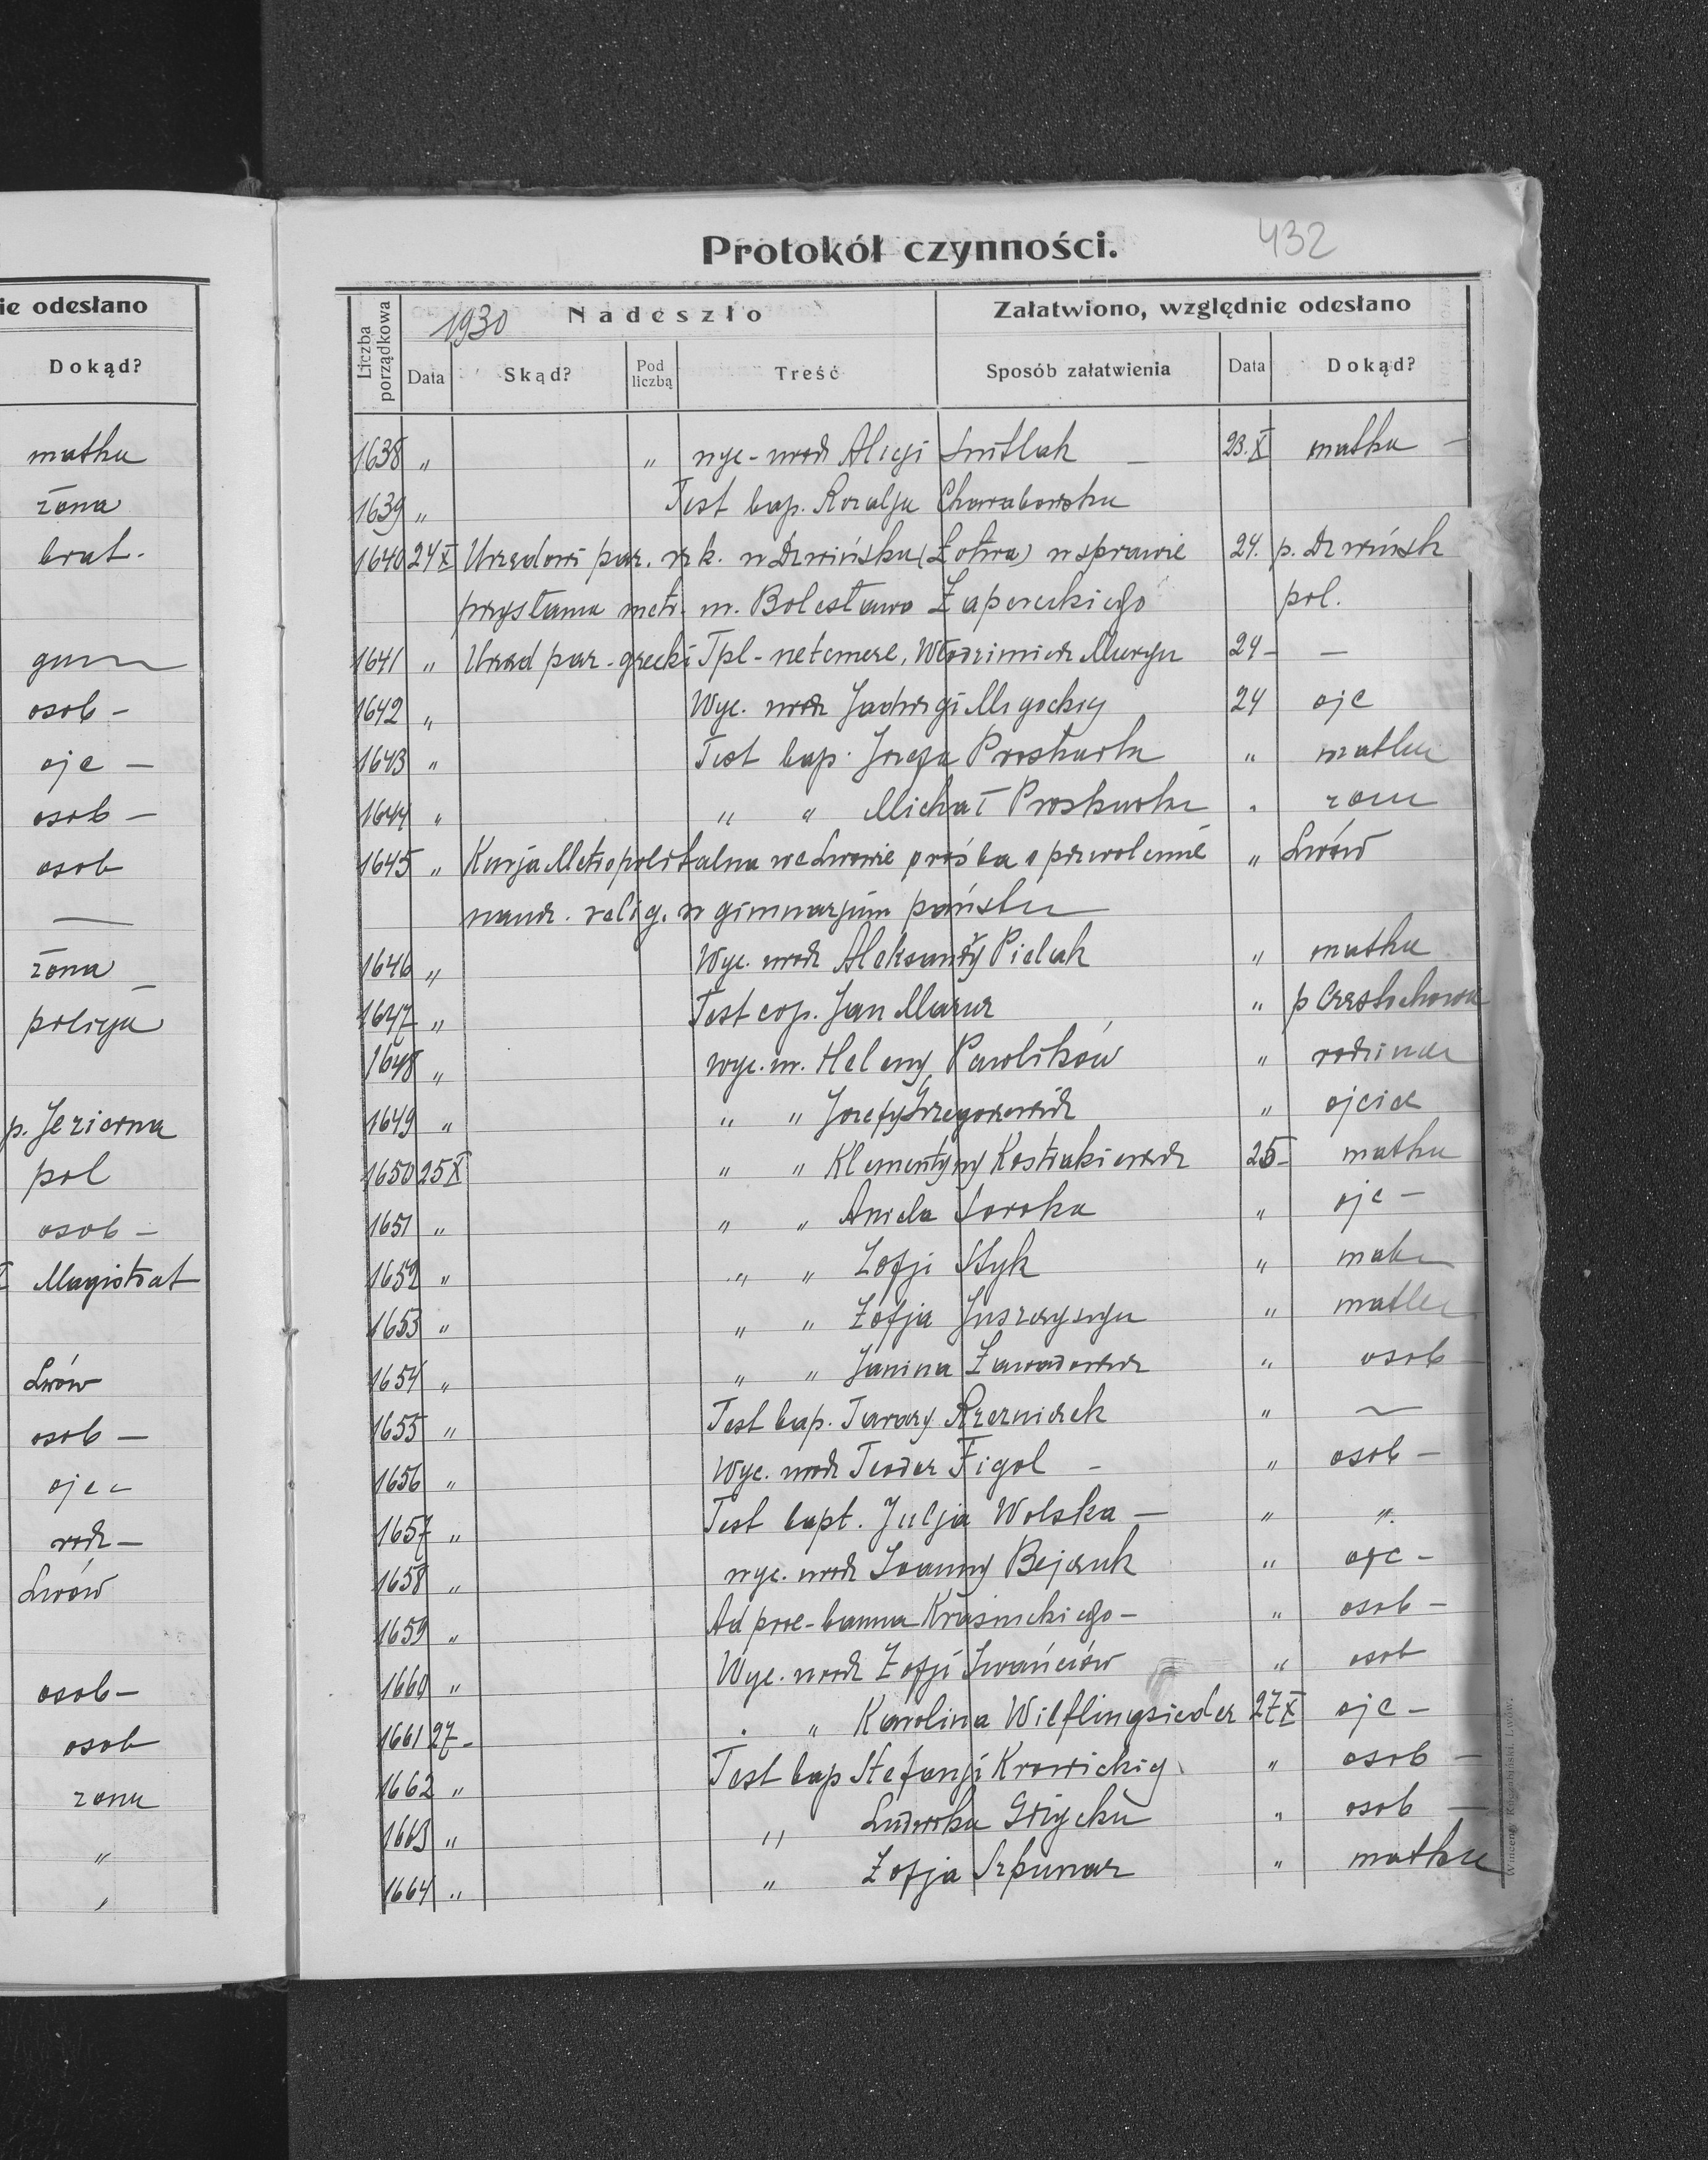 ie odesłano
Dokąd?
matka
żona
brat.
osob -
ojc -
osob -
osob
—
żona
policja
p. Jezierna
pol
osob -
Magistrat
Lwów
osob -
ojc -
rodz -
Lwów
osob -
osob
zona
"
"
Protokół czynności.
432
Liczba porządkowa
1930
Nadeszło
Załatwiono, względnie odesłano
Data
Skąd?
Pod liczbą
Treść
Sposób załatwienia
Data
Dokąd?
1638 " " wyc - urodz Alicji Switlak — 23.X matka —
1639 " Test bap. Rozalja
1640 24X Urzędowi par. rz k. w Dzwińsku (Łotwa) w sprawie 24. p. Dzwińsk
przysłania metr. m. Bolesława pol.
1641 " Urząd par. grecki Tpl - Włodzimierz 24 - —
1642 " Wyc. urodz Jadwigi 24 ojc
1643 " Test bap. Józefa Proskurka " matka
1644 " " " Michał Proskurka " zona
1645 " Kurja Metropolitalna we Lwowie prośba o pozwolenie " Lwów
naucz. relig. w gimnazjum państw
1646 " Wyc. urodz Aleksandry Pielak " matka
1647 " Test cop. Jan Mazur " p Częstochowa
1648 " wyc. m. Heleny Pawlików " rodzina
1649 " " " Józefy Grzegorzewicz " ojciec
1650 25X " " Klementyny Kostrakiewicz 25 - matka
1651 " " " Aniela Soroka " ojc -
1652 " " " Zofji Styk " matka
1653 " " " Zofja Juszczyszyn " matka
1654 " " " Janina " osob
1655 " Test bap. " —
1656 " Wyc. urodz Teodor Figol - " osob -
1657 " Test bapt. Julja Wolska — " "
1658 " wyc. urodz Joanny Bejczuk " ojc -
1659 " Ad proc - banna Krasnickiego - " osob -
1660 " Wyc. urodz Zofji Iwańciów " osob
1661 27 - " Karolina Wilflingsieder 27X ojc -
1662 " Test bap Stefanji Krowickiej " osob -
1663 " " Ludwika " osob —
1664 " " Zofja Szpunar " matka